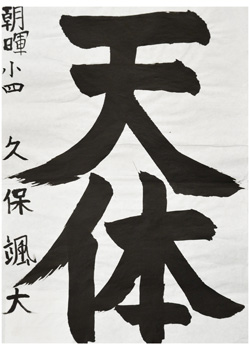 天体
朝暉小四 久保颯大